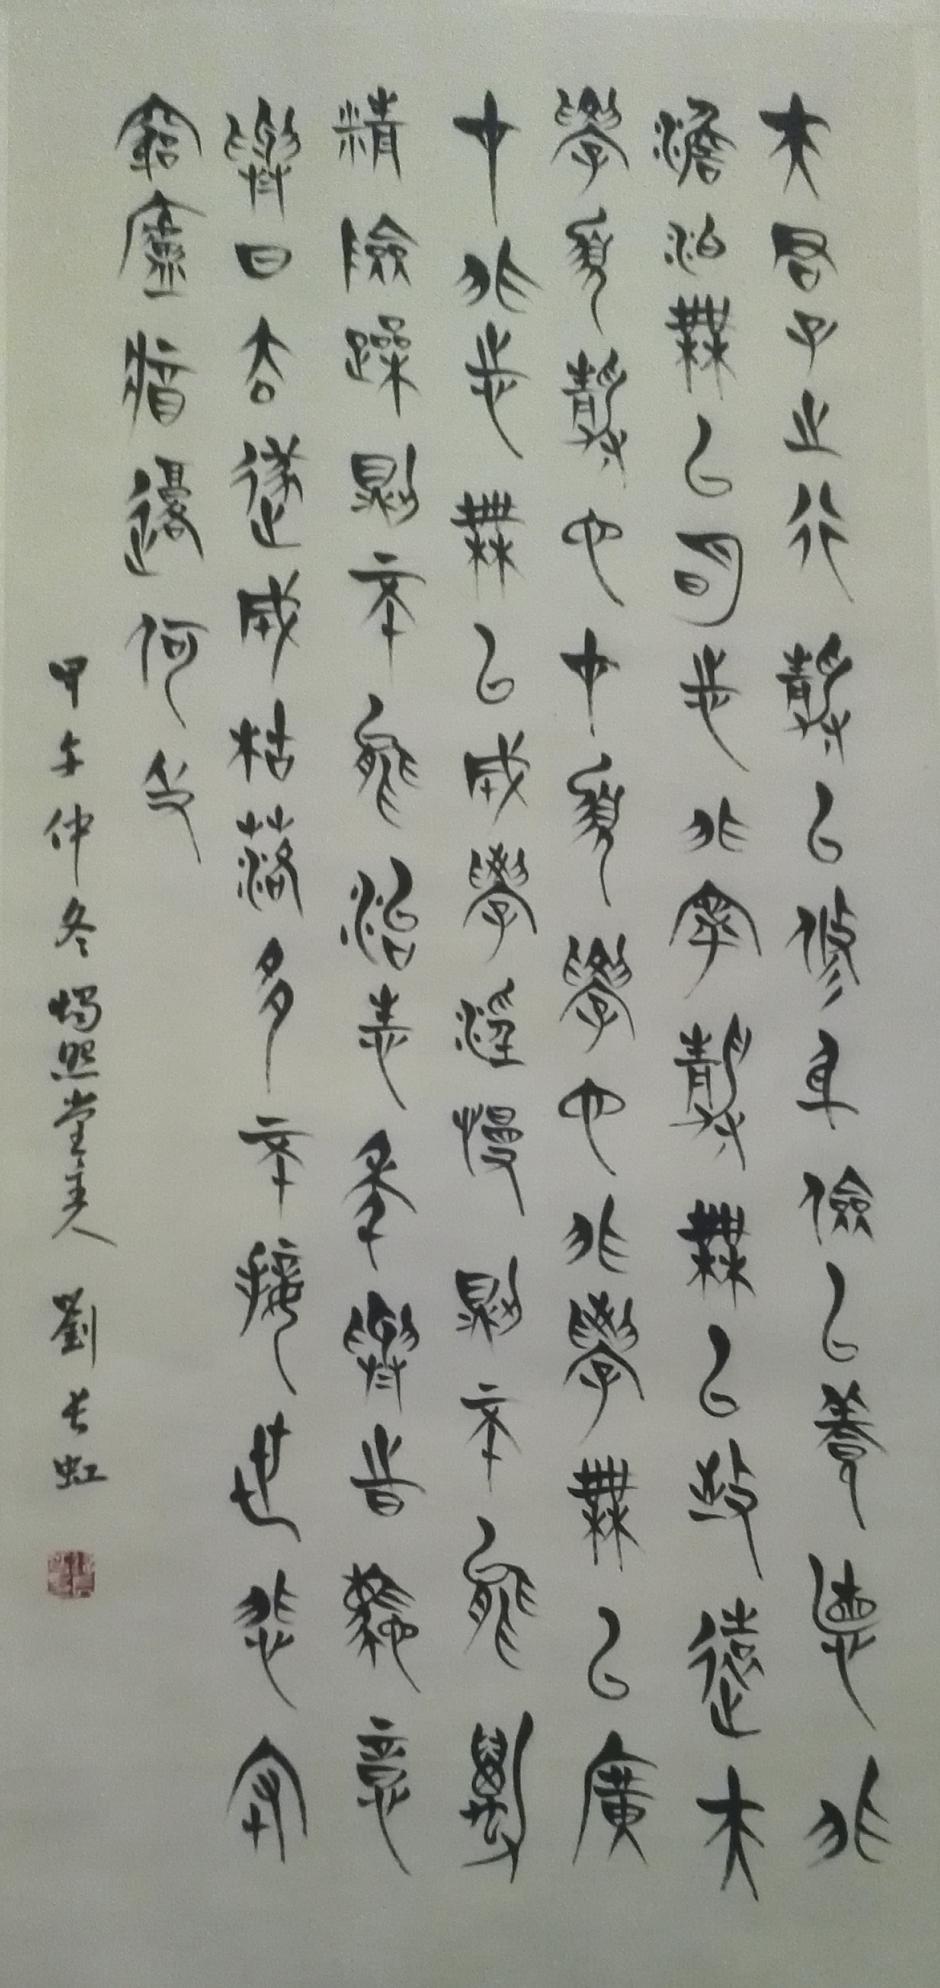 夫君子之行靜以修身儉以養德非
澹泊無以明志非寧靜無以致遠夫
學須靜也才須學也非學無以廣
才非志無以成學淫慢則不能勵
精險躁則不能治性年與時馳意
與日去遂成枯落多不接世悲守
窮廬將復何及
甲午仲冬燭照堂主人劉長虹